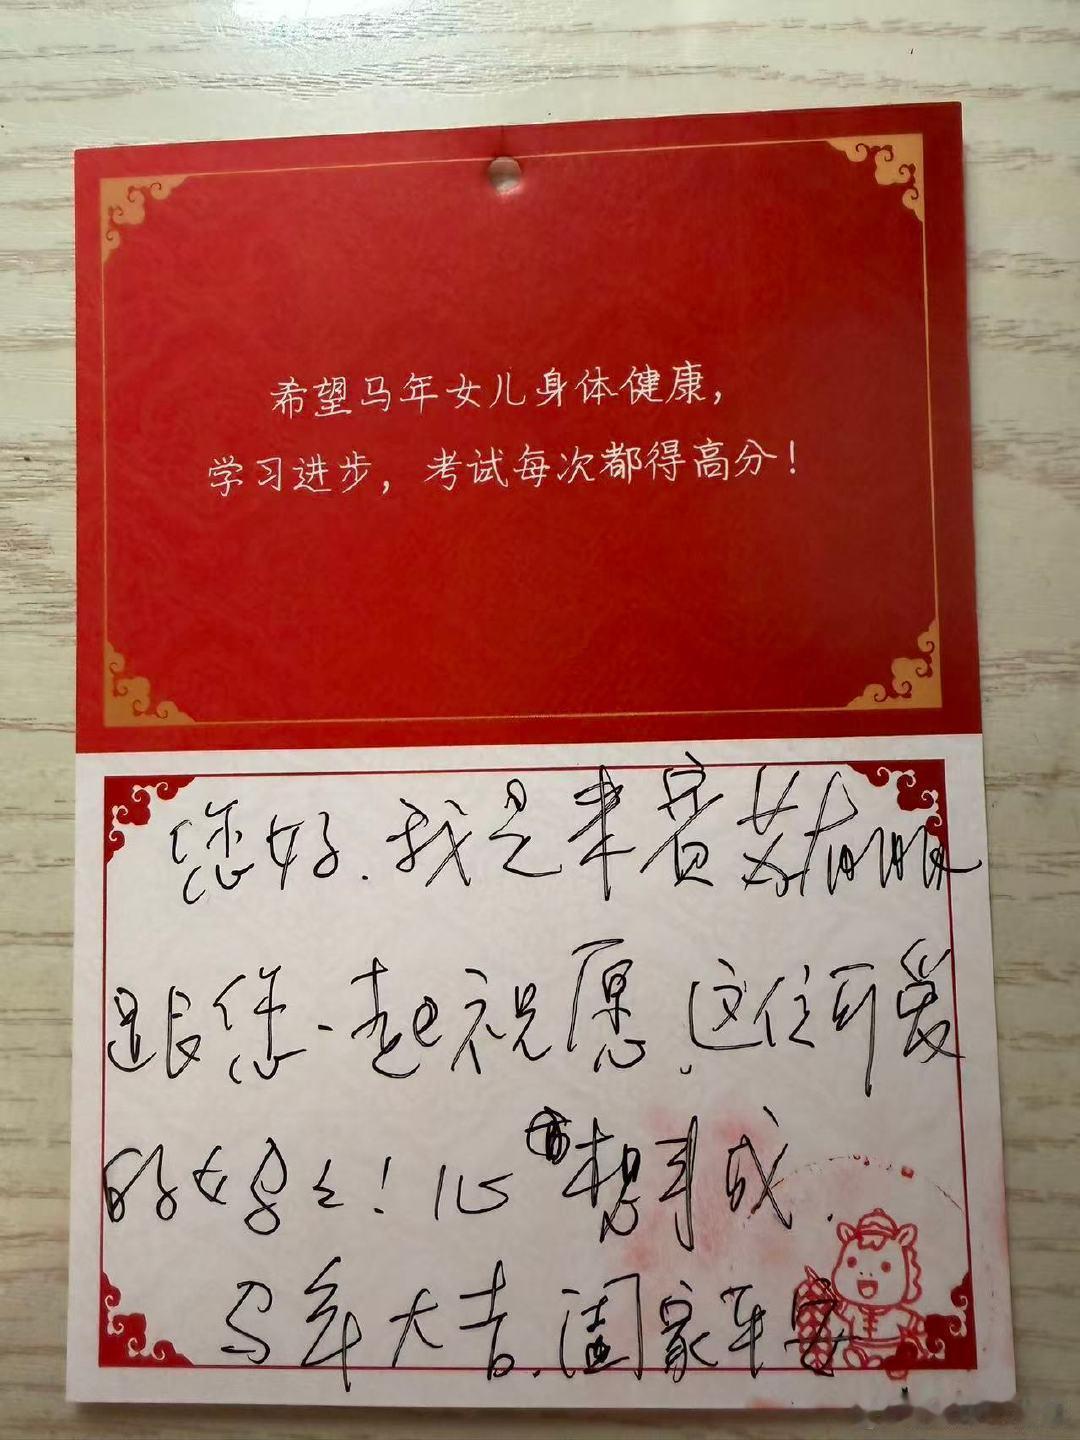 希望马年女儿身体健康，
学习进步，考试每次都得高分！
您好.我是来宾
跟您一起祝愿.这位可爱
的女婴儿！心想事成.
马年大吉.阖家平安